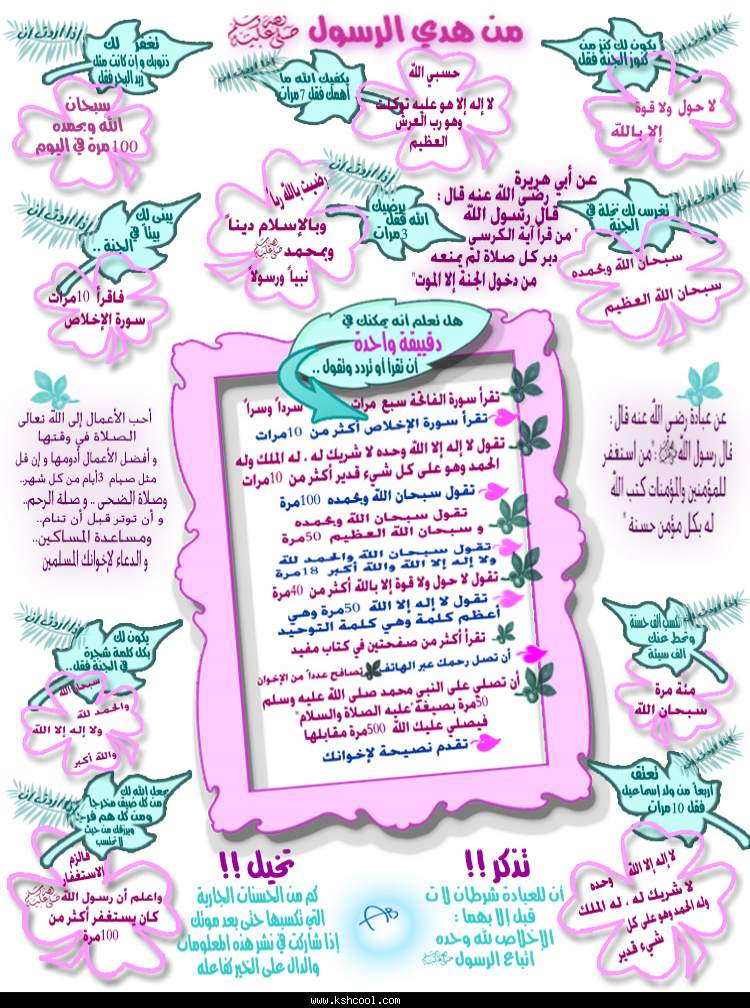 من هدي الرسول ﷺ
إذا اردت ان
يكون لك كنز من
كنوز الجنة فقل
لا حول ولا قوة
إلا بالله
إذا اردت ان
يكفيك الله ما
أهمك فقل 7مرات
حسبي الله
لا إله إلا هو عليه توكلت
وهو رب العرش
العظيم
إذا اردت ان
تغفر لك
ذنوبك و إن كانت مثل
زبد البحر فقل
سبحان
الله وبحمده
100مرة في اليوم
إذا اردت ان
تغرس لك نخلة في
الجنة
سبحان الله وبحمده
سبحان الله العظيم
عن أبي هريرة
رضي الله عنه قال :
قال رسول الله
" من قرأ آية الكرسي
دبر كل صلاة لم يمنعه
من دخول الجنة إلا الموت"
إذا اردت ان
يرضيك
الله فقل
3مرات
رضيت بالله رباً
وبالإسلام ديناً
وبمحمد ﷺ
نبياً ورسولاً
إذا اردت ان
يبنى لك
بيتاً في
الجنة ..
فاقرأ 10مرات
سورة الإخلاص
هل تعلم أنه يمكنك في
دقيقة واحدة
أن تقرأ أو تردد وتقول ..
تقرأ سورة الفاتحة سبع مرات سرداً وسراً
تقرأ سورة الإخلاص أكثر من 10مرات
تقول لا إله إلا الله وحده لا شريك له . له الملك وله
الحمد وهو على كل شيء قدير أكثر من 10مرات
تقول سبحان الله وبحمده 100مرة
تقول سبحان الله وبحمده
و سبحان الله العظيم 50مرة
تقول سبحان الله والحمد لله
ولا إله إلا الله والله أكبر 18مرة
تقول لا حول ولا قوة إلا بالله أكثر من 40مرة
تقول لا إله إلا الله 50مرة وهي
أعظم كلمة وهي كلمة التوحيد
تقرأ أكثر من صفحتين في كتاب مفيد
أن تصل رحمك عبر الهاتف تصافح عدداً من الإخوان
أن تصلي على النبي محمد صلى الله عليه وسلم
50مرة بصيغة"عليه الصلاة والسلام"
فيصلي عليك الله 500مرة مقابلها
تقدم نصيحة لإخوانك
عن عبادة رضي الله عنه قال :
قال رسول الله ﷺ :"من استغفر
للمؤمنين والمؤمنات كتب الله
له بكل مؤمن حسنة "
أحب الأعمال إلى الله تعالى
الصلاة في وقتها
و أفضل الأعمال أدومها و إن قل
مثل صيام 3أيام من كل شهر..
وصلاة الضحى .. و صلة الرحم..
و أن توتر قبل أن تنام..
ومساعدة المساكين..
و الدعاء لإخوانك المسلمين
إذا اردت ان
تكسب ألف حسنة
وتحط عنك
ألف سيئة
مئة مرة
سبحان الله
إذا اردت ان
يكون لك
بكل كلمة شجرة
في الجنة فقل..
سبحان الله
والحمد لله
ولا إله إلا الله
والله أكبر
إذا اردت ان
تعتق
أربعاً من ولد إسماعيل
فقل 10مرات
لا إله إلا الله وحده
لا شريك له . له الملك
وله الحمد وهو على كل
شيء قدير
إذا اردت ان
يجعل الله لك
من كل ضيق مخرجاً
ومن كل هم فرجاً
ويرزقك من حيث
لا تحتسب
فالزم
الاستغفار
واعلم أن رسول الله ﷺ
كان يستغفر أكثر من
100مرة
تذكر !!
أن للعبادة شرطان لا ت
قبل إلا بهما :
الإخلاص لله وحده
اتباع الرسول ﷺ
تخيل !!
كم من الحسنات الجارية
التي تكسبها حتى بعد موتك
إذا شاركت في نشر هذه المعلومات
والدال على الخير كفاعله
AB
www.kshcool.com